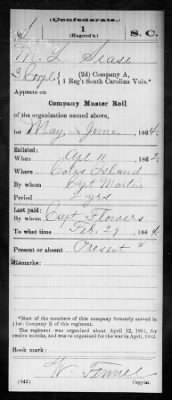 (Confederate.)
S 1 S. C.
(Hagood's.)
M. L. Sease
3 Corpl (2d) Company A,
1 Reg't South Carolina Vols.*
Appears on
Company Muster Roll
of the organization named above,
for May & June, 1864.
Enlisted:
When Apl 11, 1862.
Where Coles Island
By whom Capt Martin
Period 2 yrs
Last paid:
By whom Capt Flowers
To what time Feb. 29, 1864.
Present or absent Present
Remarks:
*Most of the members of this company formerly served in
(1st) Company K of this regiment.
The regiment was organized about April 12, 1861, for
twelve months, and was re-organized for the war in April, 1862.
Book mark:
(642) Copyist.